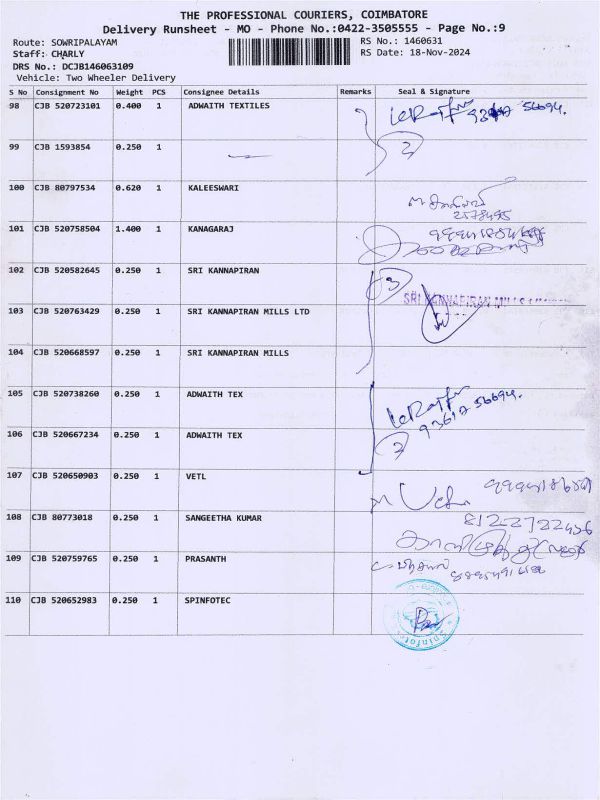 THE PROFESSIONAL COURIERS, COIMBATORE
Delivery Runsheet - MO - Phone No.:0422-3505555 - Page No.:9
Route: SOWRIPALAYAM
RS No.: 1460631
Staff: CHARLY
RS Date: 18-Nov-2024
DRS No.: DCJB146063109
Vehicle: Two Wheeler Delivery
S No Consignment No Weight PCS Consignee Details Remarks Seal & Signature
98 CJB 520723101 0.400 1 ADWAITH TEXTILES
99 CJB 1593854 0.250 1
2
100 CJB 80797534 0.620 1 KALEESWARI
101 CJB 520758504 1.400 1 KANAGARAJ
102 CJB 520582645 0.250 1 SRI KANNAPIRAN
3
SRI KANNAPIRAN MILLS
103 CJB 520763429 0.250 1 SRI KANNAPIRAN MILLS LTD
104 CJB 520668597 0.250 1 SRI KANNAPIRAN MILLS
105 CJB 520738260 0.250 1 ADWAITH TEX
93617 56694.
106 CJB 520667234 0.250 1 ADWAITH TEX
2
107 CJB 520650903 0.250 1 VETL
108 CJB 80773018 0.250 1 SANGEETHA KUMAR
109 CJB 520759765 0.250 1 PRASANTH
110 CJB 520652983 0.250 1 SPINFOTEC